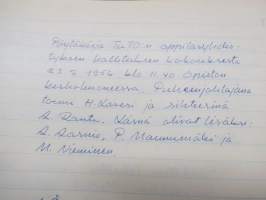 Pöytäkirja TaTO:n oppilasyhdis-
tyksen hallituksen kokouksesta
23.2.1956 klo 11.40 Opiston
keskolmoneessa. Puheenjohtajana
toimi H. Laveri ja sihteerinä
L. Rantu. Läsnä olivat lisäksi
L. Aarnio, P. Mannumäki ja
M. Nieminen.